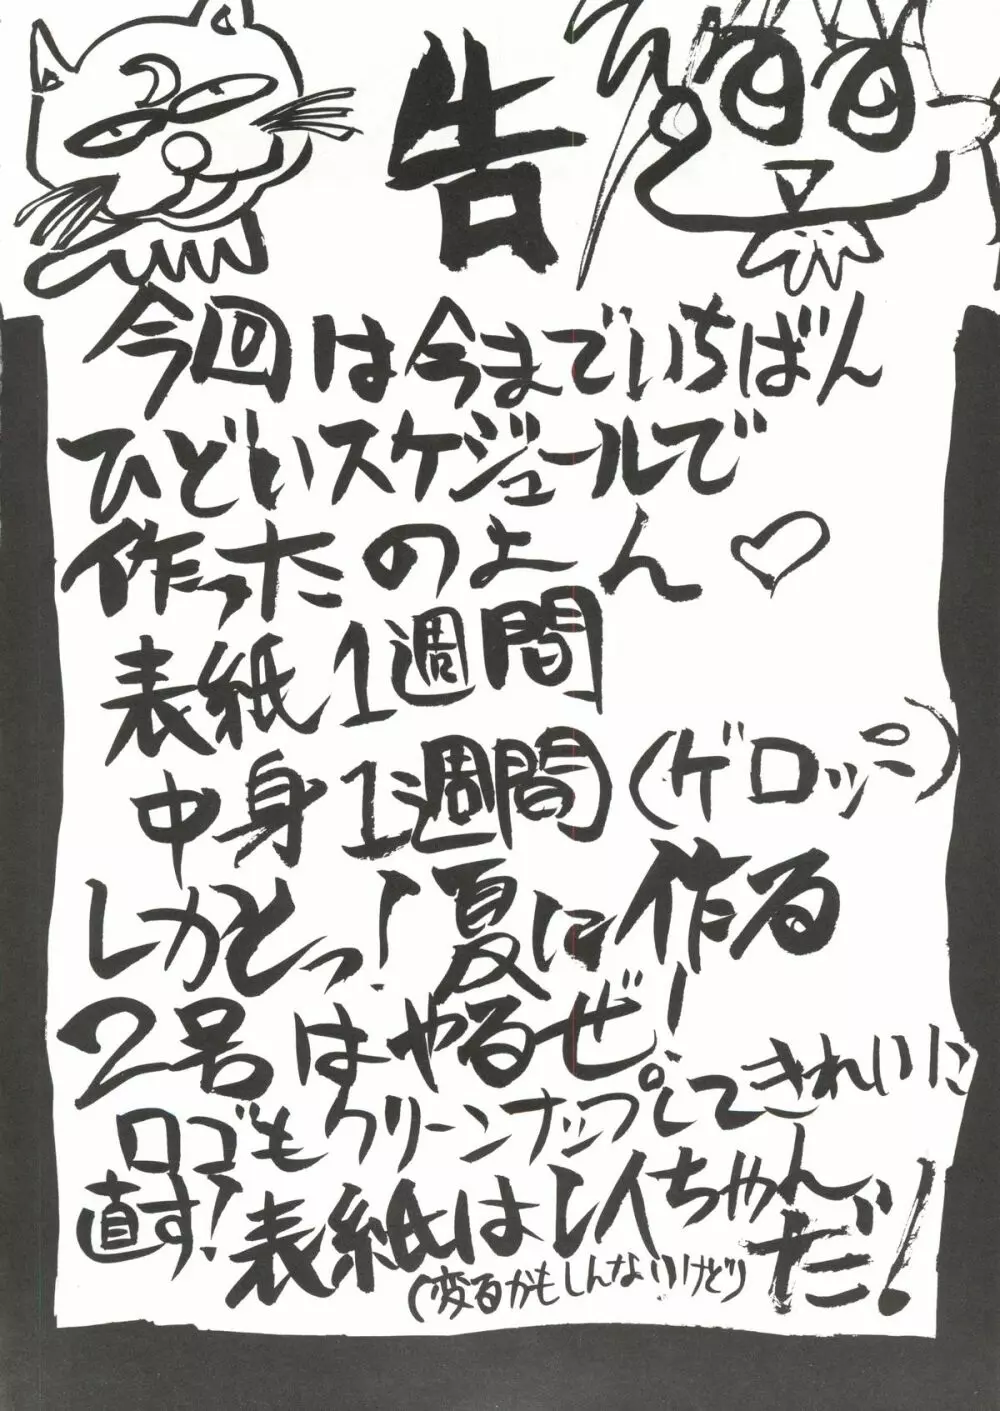 告
今回は今までいちばん
ひどいスケジュールで
作ったのよん♡
表紙1週間
中身1週間(ゲロッパ)
しかとっ!夏に作る
2号はやるぜ!
ロゴもクリーンナップしてきれいに
直す!表紙はレイちゃんだ!
(変るかもしんないけどり